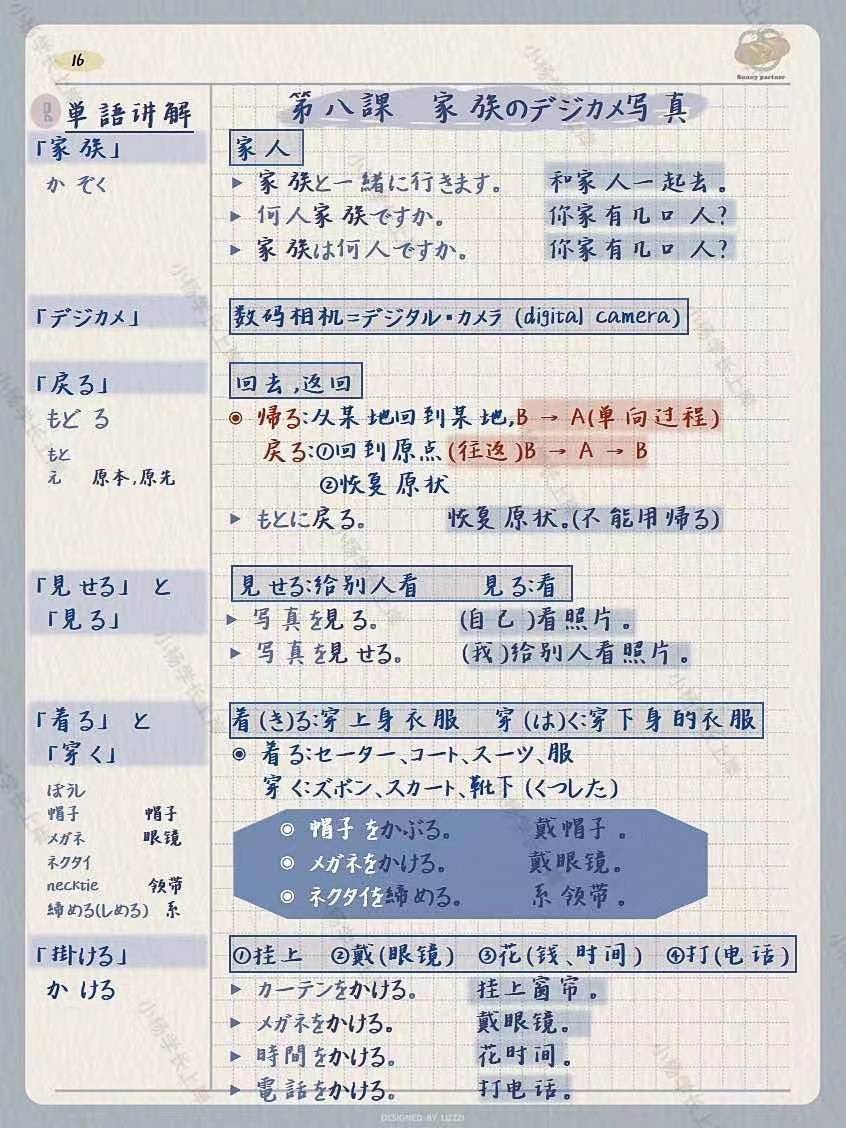 16
Sunny partner
単語讲解
第八課 家族のデジカメ写真
「家族」 家人
かぞく ▶ 家族と一緒に行きます。 和家人一起去。
▶ 何人家族ですか。 你家有几口人?
▶ 家族は何人ですか。 你家有几口人?
「デジカメ」 数码相机=デジタル・カメラ (digital camera)
「戻る」 回去,返回
もどる ◉ 帰る:从某地回到某地,B → A(单向过程)
もと 戻る:①回到原点(往返)B → A → B
元 原本,原先 ②恢复原状
▶ もとに戻る。 恢复原状。(不能用帰る)
「見せる」と 見せる:给别人看 見る:看
「見る」 ▶ 写真を見る。 (自己)看照片。
▶ 写真を見せる。 (我)给别人看照片。
「着る」と 着(き)る:穿上身衣服 穿(は)く:穿下身的衣服
「穿く」 ◉ 着る:セーター、コート、スーツ、服
ぼうし 穿く:ズボン、スカート、靴下(くつした)
帽子 帽子 ◉ 帽子をかぶる。 戴帽子。
メガネ 眼镜 ◉ メガネをかける。 戴眼镜。
ネクタイ ◉ ネクタイを締める。 系领带。
necktie 领带
締める(しめる) 系
「掛ける」 ①挂上 ②戴(眼镜) ③花(钱、时间) ④打(电话)
かける ▶ カーテンをかける。 挂上窗帘。
▶ メガネをかける。 戴眼镜。
▶ 時間をかける。 花时间。
▶ 電話をかける。 打电话。
DESIGNED BY LIZZI
小杨学长上岸